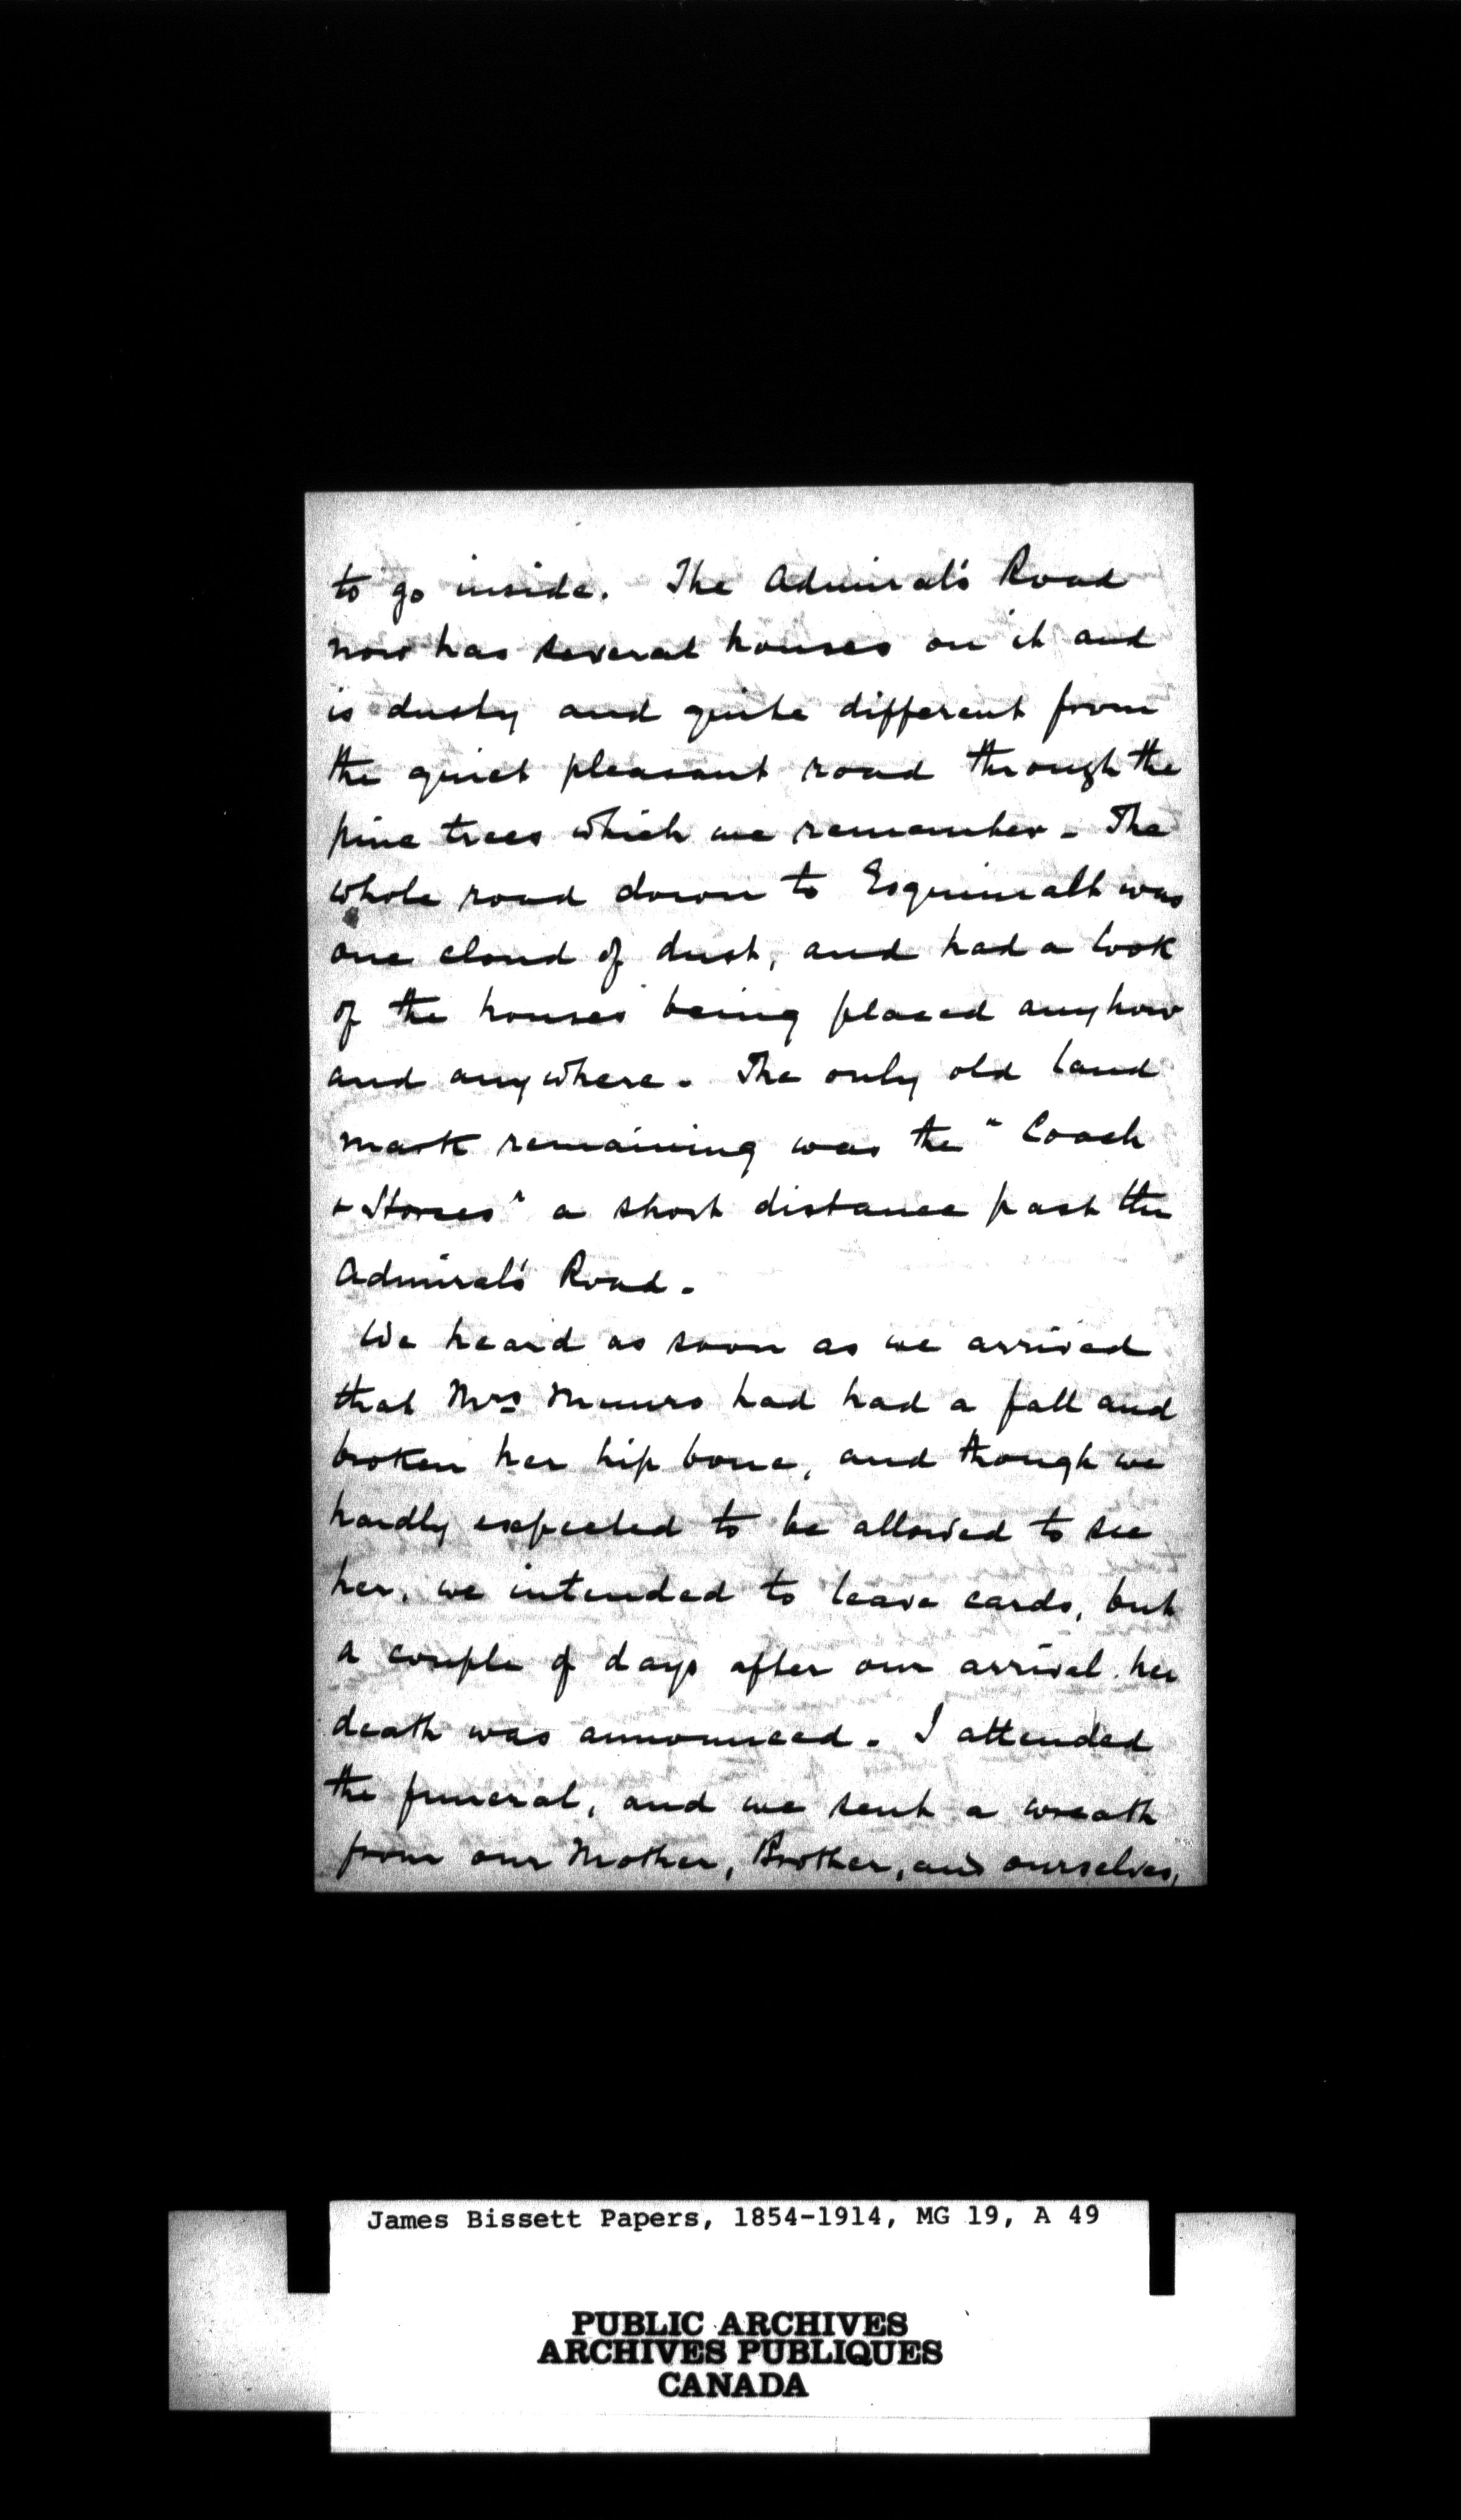 to go inside. The Admiral's Road
now has several houses on it and
is dusty and quite different from
the quiet pleasant road through the
pine trees which we remember - The
whole road down to Esquimalt was
one cloud of dust, and had a look
of the houses being placed anyhow
and anywhere. The only old land
mark remaining was the "Coach
& Horses" a short distance past the
Admiral's Road.
We heard as soon as we arrived
that Mrs Munro had had a fall and
broken her hip bone, and though we
hardly expected to be allowed to see
her, we intended to leave cards, but
a couple of days after our arrival her
death was announced. I attended
the funeral, and we sent a wreath
from our Mother, Brother, and ourselves,
James Bissett Papers, 1854-1914, MG 19, A 49
PUBLIC ARCHIVES
ARCHIVES PUBLIQUES
CANADA